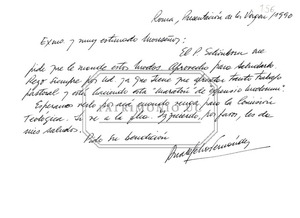 156
Roma, Presentación de la Virgen /1990
Exmo. y muy estimado Monseñor:
El P. Schönborn me
pide que le mande estos modos. Aprovecho para saludarlo
Rezo siempre por Ud. ya que tiene que afrontar tanto trabajo
pastoral y está haciendo esta "maratón" de
Esperamos verlo por acá cuando venga para la Comisión
Teológica. Si ve a la le doy, por favor, les dé
mis saludos.
Pide su bendición
PATRIMONIO